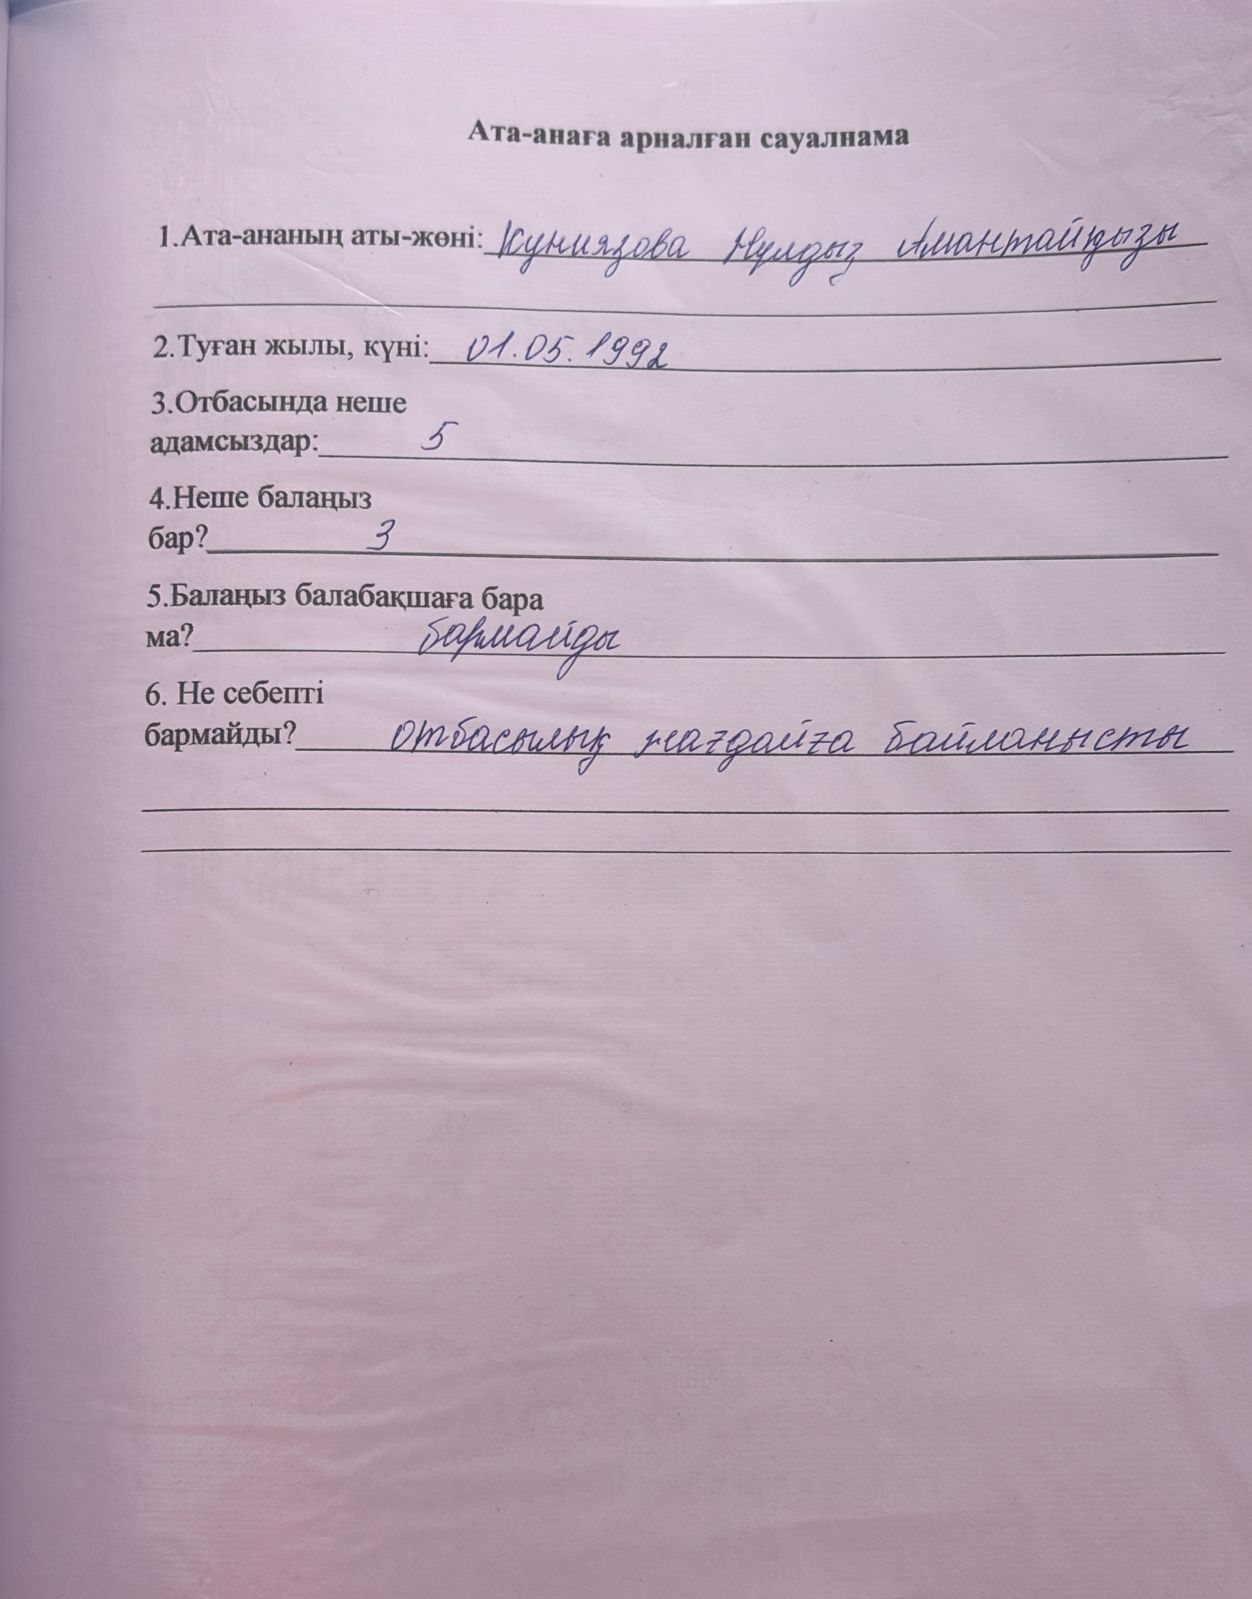 Ата-анаға арналған сауалнама
1.Ата-ананың аты-жөні: Куниязова Жұлдыз Амантайқызы
2.Туған жылы, күні: 01.05.1992
3.Отбасында неше
адамсыздар: 5
4.Неше балаңыз
бар? 3
5.Балаңыз балабақшаға бара
ма? бармайды
6. Не себепті
бармайды? отбасылық жағдайға байланысты